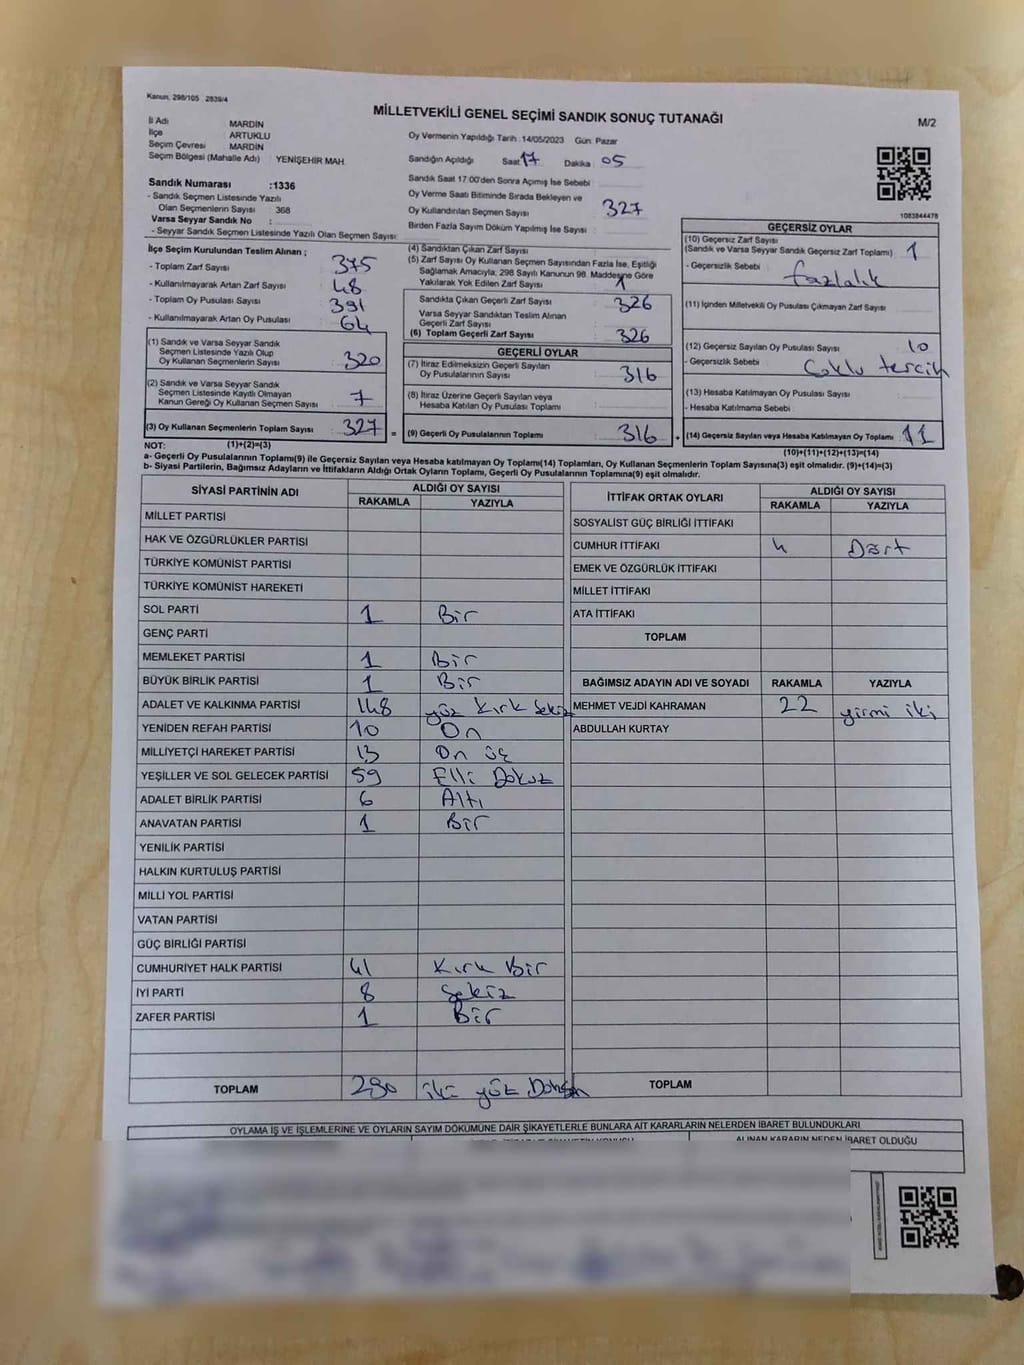 Kanun, 298/105 2839/4
MİLLETVEKİLİ GENEL SEÇİMİ SANDIK SONUÇ TUTANAĞI
M/2
İl Adı MARDİN
İlçe ARTUKLU
Seçim Çevresi MARDİN
Seçim Bölgesi (Mahalle Adı) : YENİŞEHİR MAH.
Oy Vermenin Yapıldığı Tarih :14/05/2023 Gün: Pazar
Sandığın Açıldığı Saat 17 Dakika 05
Sandık Saat 17.00'den Sonra Açılmış İse Sebebi
Sandık Numarası :1336
- Sandık Seçmen Listesinde Yazılı
Olan Seçmenlerin Sayısı 368
Varsa Seyyar Sandık No :
- Seyyar Sandık Seçmen Listesinde Yazılı Olan Seçmen Sayısı:
Oy Verme Saati Bitiminde Sırada Bekleyen ve
Oy Kullandırılan Seçmen Sayısı 327
Birden Fazla Sayım Döküm Yapılmış İse Sayısı :
1083844478
İlçe Seçim Kurulundan Teslim Alınan ;
- Toplam Zarf Sayısı 375
- Kullanılmayarak Artan Zarf Sayısı 48
- Toplam Oy Pusulası Sayısı 391
- Kullanılmayarak Artan Oy Pusulası 64
(1) Sandık ve Varsa Seyyar Sandık
Seçmen Listesinde Yazılı Olup
Oy Kullanan Seçmenlerin Sayısı 320
(2) Sandık ve Varsa Seyyar Sandık
Seçmen Listesinde Kayıtlı Olmayan
Kanun Gereği Oy Kullanan Seçmen Sayısı 7
(3) Oy Kullanan Seçmenlerin Toplam Sayısı 327 =
(4) Sandıktan Çıkan Zarf Sayısı
(5) Zarf Sayısı Oy Kullanan Seçmen Sayısından Fazla İse, Eşitliği
Sağlamak Amacıyla; 298 Sayılı Kanunun 98. Maddesine Göre
Yakılarak Yok Edilen Zarf Sayısı 1
Sandıkta Çıkan Geçerli Zarf Sayısı 326
Varsa Seyyar Sandıktan Teslim Alınan
Geçerli Zarf Sayısı
(6) Toplam Geçerli Zarf Sayısı 326
GEÇERLİ OYLAR
(7) İtiraz Edilmeksizin Geçerli Sayılan
Oy Pusulalarının Sayısı 316
(8) İtiraz Üzerine Geçerli Sayılan veya
Hesaba Katılan Oy Pusulası Toplamı
(9) Geçerli Oy Pusulalarının Toplamı 316 +
GEÇERSİZ OYLAR
(10) Geçersiz Zarf Sayısı
(Sandık ve Varsa Seyyar Sandık Geçersiz Zarf Toplamı) 1
- Geçersizlik Sebebi fazlalık
(11) İçinden Milletvekili Oy Pusulası Çıkmayan Zarf Sayısı
(12) Geçersiz Sayılan Oy Pusulası Sayısı 10
- Geçersizlik Sebebi Çoklu tercih
(13) Hesaba Katılmayan Oy Pusulası Sayısı
- Hesaba Katılmama Sebebi
(14) Geçersiz Sayılan veya Hesaba Katılmayan Oy Toplamı 11
(10)+(11)+(12)+(13)=(14)
NOT: (1)+(2)=(3)
a- Geçerli Oy Pusulalarının Toplamı(9) ile Geçersiz Sayılan veya Hesaba katılmayan Oy Toplamı(14) Toplamları, Oy Kullanan Seçmenlerin Toplam Sayısına(3) eşit olmalıdır. (9)+(14)=(3)
b- Siyasi Partilerin, Bağımsız Adayların ve İttifakların Aldığı Ortak Oyların Toplamı, Geçerli Oy Pusulalarının Toplamına(9) eşit olmalıdır.
SİYASİ PARTİNİN ADI ALDIĞI OY SAYISI
RAKAMLA YAZIYLA
MİLLET PARTİSİ
HAK VE ÖZGÜRLÜKLER PARTİSİ
TÜRKİYE KOMÜNİST PARTİSİ
TÜRKİYE KOMÜNİST HAREKETİ
SOL PARTİ 1 Bir
GENÇ PARTİ
MEMLEKET PARTİSİ 1 Bir
BÜYÜK BİRLİK PARTİSİ 1 Bir
ADALET VE KALKINMA PARTİSİ 148 yüz kırk sekiz
YENİDEN REFAH PARTİSİ 10 On
MİLLİYETÇİ HAREKET PARTİSİ 13 On üç
YEŞİLLER VE SOL GELECEK PARTİSİ 59 Elli Dokuz
ADALET BİRLİK PARTİSİ 6 Altı
ANAVATAN PARTİSİ 1 Bir
YENİLİK PARTİSİ
HALKIN KURTULUŞ PARTİSİ
MİLLİ YOL PARTİSİ
VATAN PARTİSİ
GÜÇ BİRLİĞİ PARTİSİ
CUMHURİYET HALK PARTİSİ 41 Kırk Bir
İYİ PARTİ 8 Sekiz
ZAFER PARTİSİ 1 Bir
TOPLAM 290 iki yüz Doksan
İTTİFAK ORTAK OYLARI ALDIĞI OY SAYISI
RAKAMLA YAZIYLA
SOSYALİST GÜÇ BİRLİĞİ İTTİFAKI
CUMHUR İTTİFAKI 4 Dört
EMEK VE ÖZGÜRLÜK İTTİFAKI
MİLLET İTTİFAKI
ATA İTTİFAKI
TOPLAM
BAĞIMSIZ ADAYIN ADI VE SOYADI RAKAMLA YAZIYLA
MEHMET VEJDİ KAHRAMAN 22 yirmi iki
ABDULLAH KURTAY
TOPLAM
OYLAMA İŞ VE İŞLEMLERİNE VE OYLARIN SAYIM DÖKÜMÜNE DAİR ŞİKAYETLERLE BUNLARA AİT KARARLARIN NELERDEN İBARET BULUNDUKLARI
ALINAN KARARIN NEDEN İBARET OLDUĞU